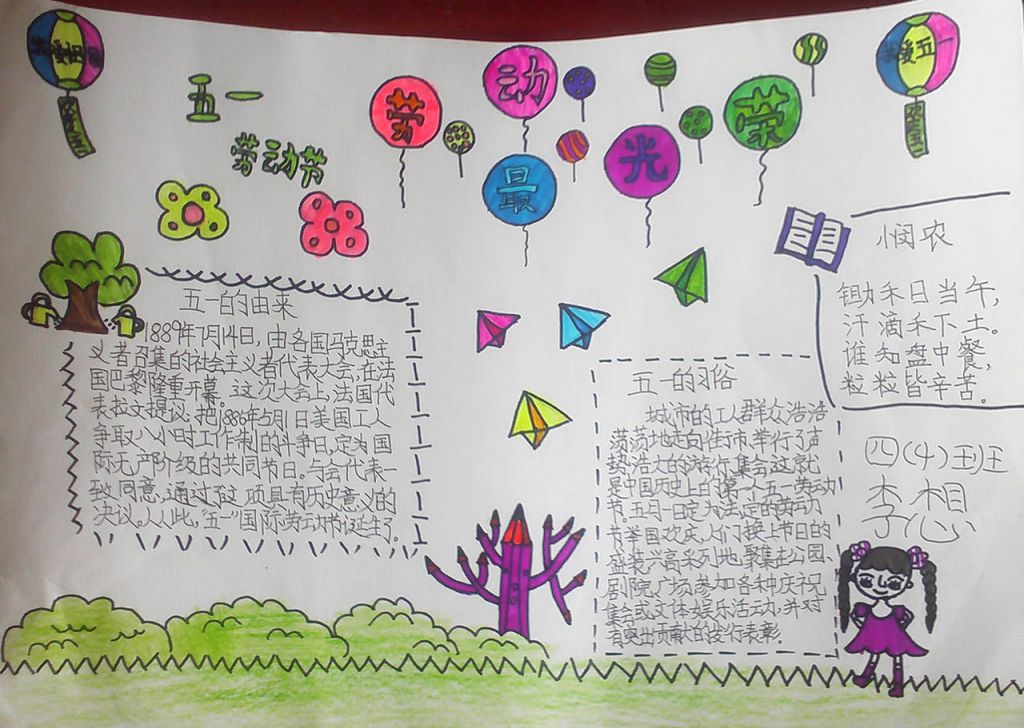 五一
劳动节
劳动最光荣
五一的由来
1889年7月14日,由各国马克思主
义者召集的社会主义者代表大会,在法
国巴黎隆重开幕。这次大会上,法国代
表拉文提议:把1886年5月1日美国工人
争取八小时工作制的斗争日,定为国
际无产阶级的共同节日。与会代表一
致同意,通过了这项具有历史意义的
决议。从此,“五一”国际劳动节诞生了。
五一的习俗
城市的工人群众浩浩
荡荡地走向街市,举行了声
势浩大的游行集会,这就
是中国历史上的第一个五一劳动
节。五月一日定为法定的劳动
节,举国欢庆,人们换上节日的
盛装,兴高采烈地聚集在公园
剧院,广场,参加各种庆祝
集会或文体娱乐活动,并对
有突出贡献的
悯农
锄禾日当午,
汗滴禾下土。
谁知盘中餐,
粒粒皆辛苦。
四(4)班
李想
我爱五一